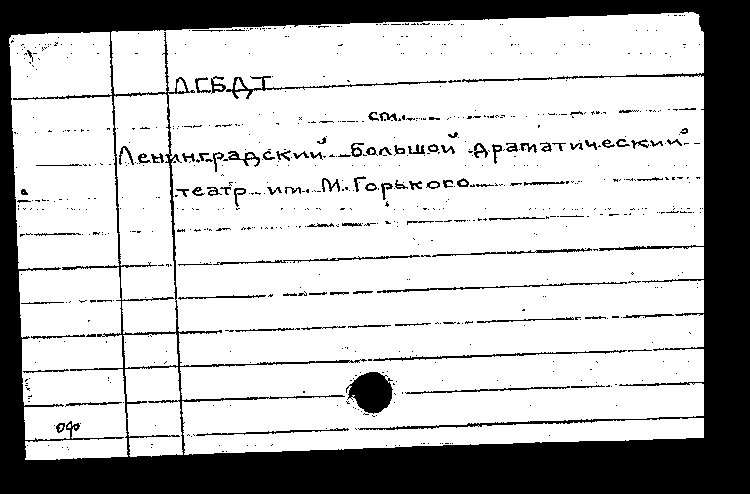 ЛГБДТ
см.
Ленинградский Большой драматический
театр им. М. Горького